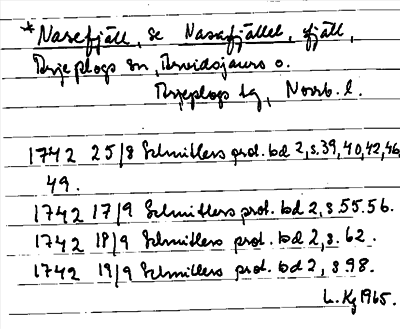 *Nasefjäll, se Nasafjället, fjäll,
Arjeplogs sn, Arvidsjaurs o.
Arjeplogs tg, Norrb. l.
1742 25/8 Schnitlers prot. bd 2, s. 39, 40, 42, 46,
49.
1742 17/9 Schnitlers prot. bd 2, s. 55. 56.
1742 18/9 Schnitlers prot. bd 2, s. 62.
1742 19/9 Schnitlers prot. bd 2, s. 98.
L. Kg 1965.